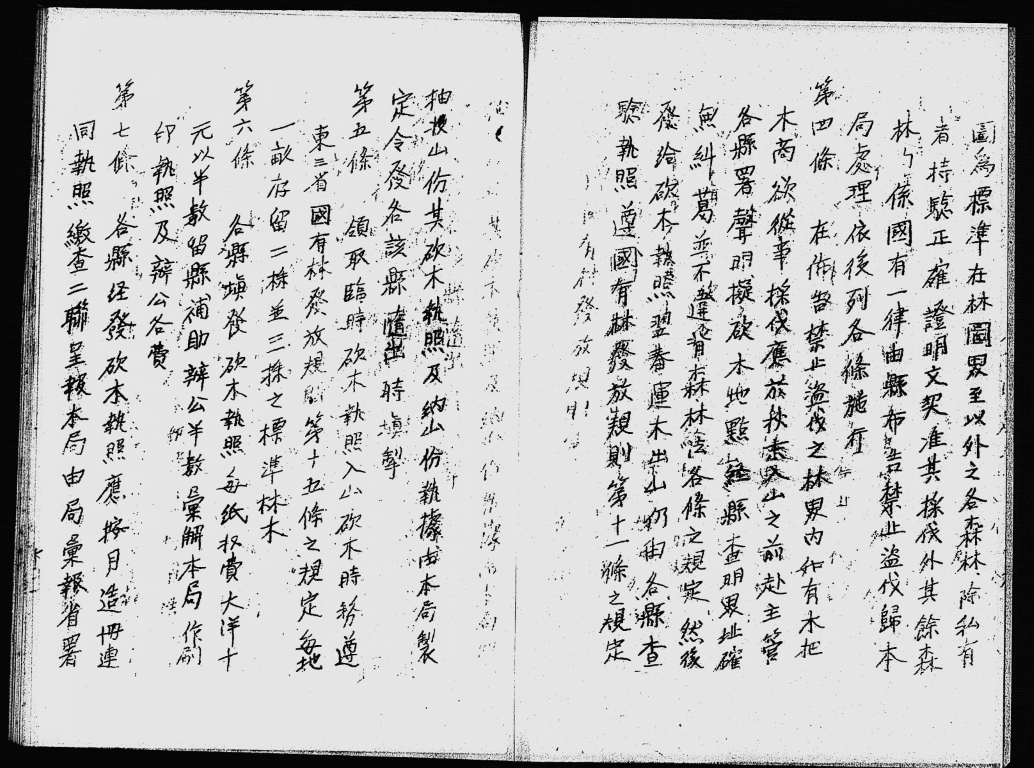 圖為標準在林圖界至以外之各森林除私有
者持驗正確證明文契准其採伐外其餘森
林係國有一律由縣布告禁止盜伐歸本
局處理依後列各條施行
第四條 在佈告禁止盜伐之林界內如有木把
木商欲從事採伐應於秋末入山之前赴主管
各縣署聲明擬砍木地點經縣查明界址確
無糾葛並不違背森林法各條之規定然後
發給砍木執照翌春運木出山仍由各縣查
驗執照遵國有林發放規則第十一條之規定
抽收山份其砍木執照及納山份執據由本局製
定令發各該縣隨時填掣
第五條 領取臨時砍木執照入山砍木時務遵
東三省國有林發放規則第十五條之規定每地
一畝存留二株並三株之標準林木
第六條 各縣填發砍木執照每紙收費大洋十
元以半數留縣補助辦公半數彙解本局作刷
印執照及辦公各費
第七條 各縣經發砍木執照應按月造冊連
同執照繳查二聯呈報本局由局彙報省署